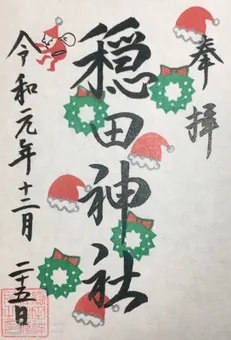 奉拝
穏田神社
令和元年十二月二十五日